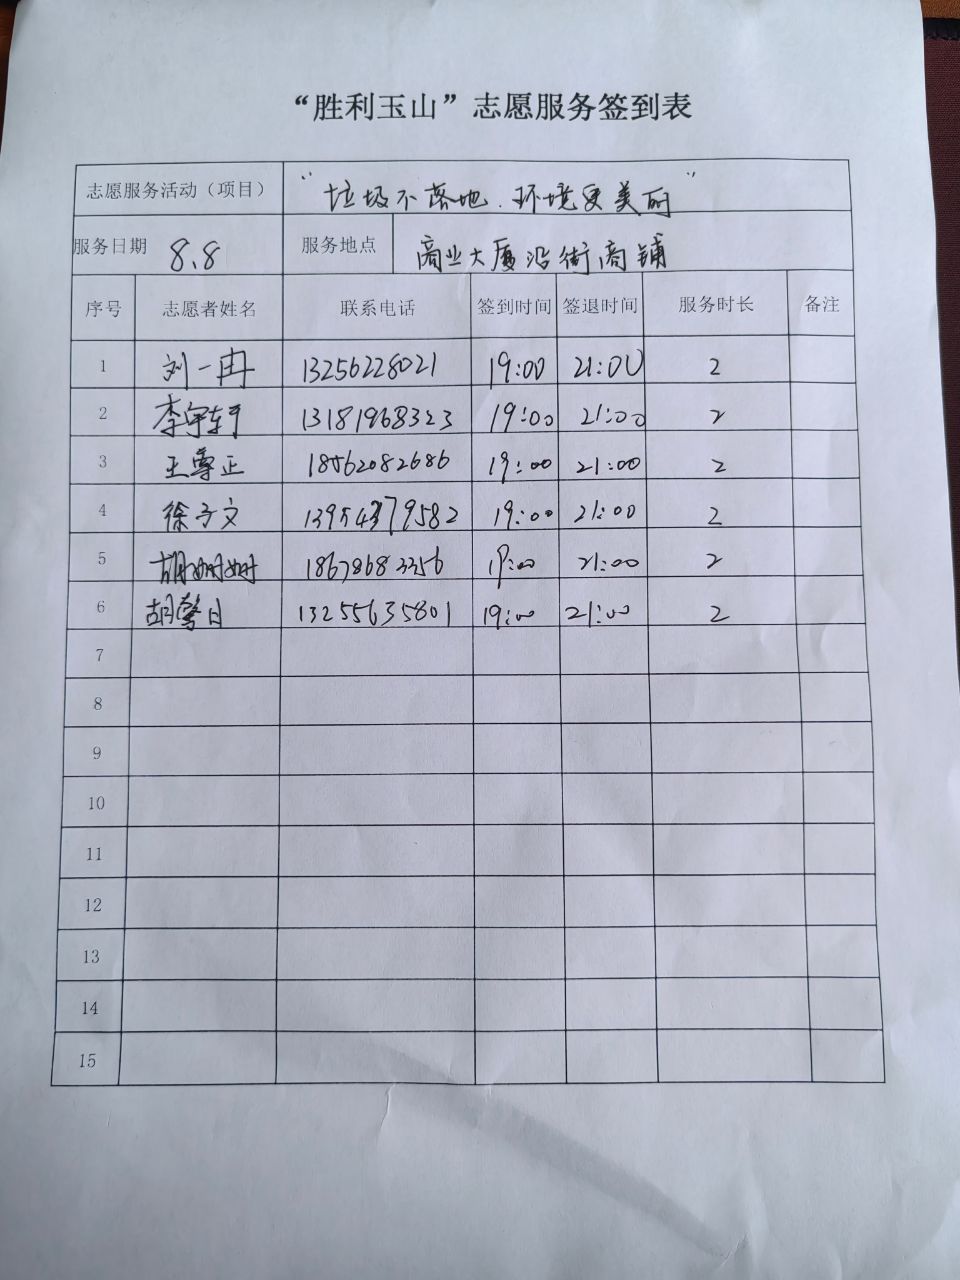 “胜利玉山”志愿服务签到表
志愿服务活动（项目） “垃圾不落地.环境更美丽”
服务日期 8.8 服务地点 商业大厦沿街商铺
序号 志愿者姓名 联系电话 签到时间 签退时间 服务时长 备注
1 刘一冉 13256228021 19:00 21:00 2
2 李宇轩 13181968323 19:00 21:00 2
3 王尊正 18562082686 19:00 21:00 2
4 徐子文 13954379582 19:00 21:00 2
5 胡姗姗 18678683356 19:00 21:00 2
6 胡 日 13255635801 19:00 21:00 2
7
8
9
10
11
12
13
14
15